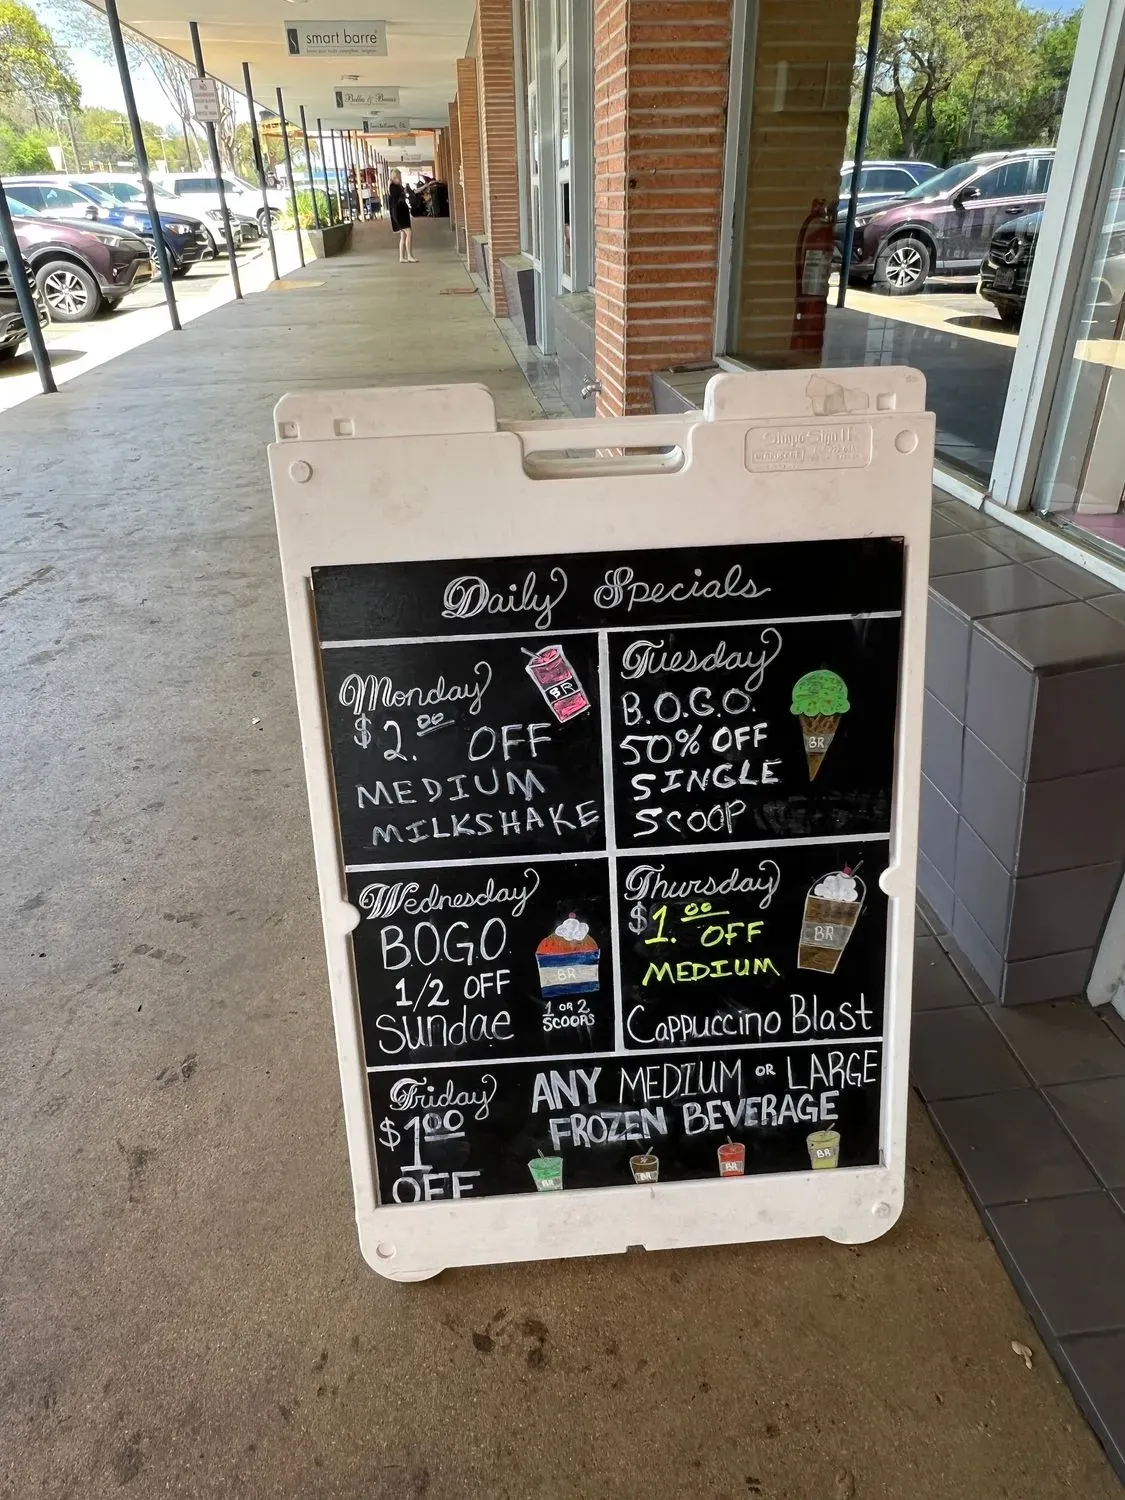 smart barre
Daily Specials
Monday
$2.00 OFF
MEDIUM
MILKSHAKE
BR
Tuesday
B.O.G.O.
50% OFF
SINGLE
SCOOP
BR
Wednesday
BOGO
1/2 OFF
Sundae
BR
1 OR 2
SCOOPS
Thursday
$1.00 OFF
MEDIUM
Cappuccino Blast
BR
Friday
$1.00
OFF
ANY MEDIUM OR LARGE
FROZEN BEVERAGE
BR BR BR BR